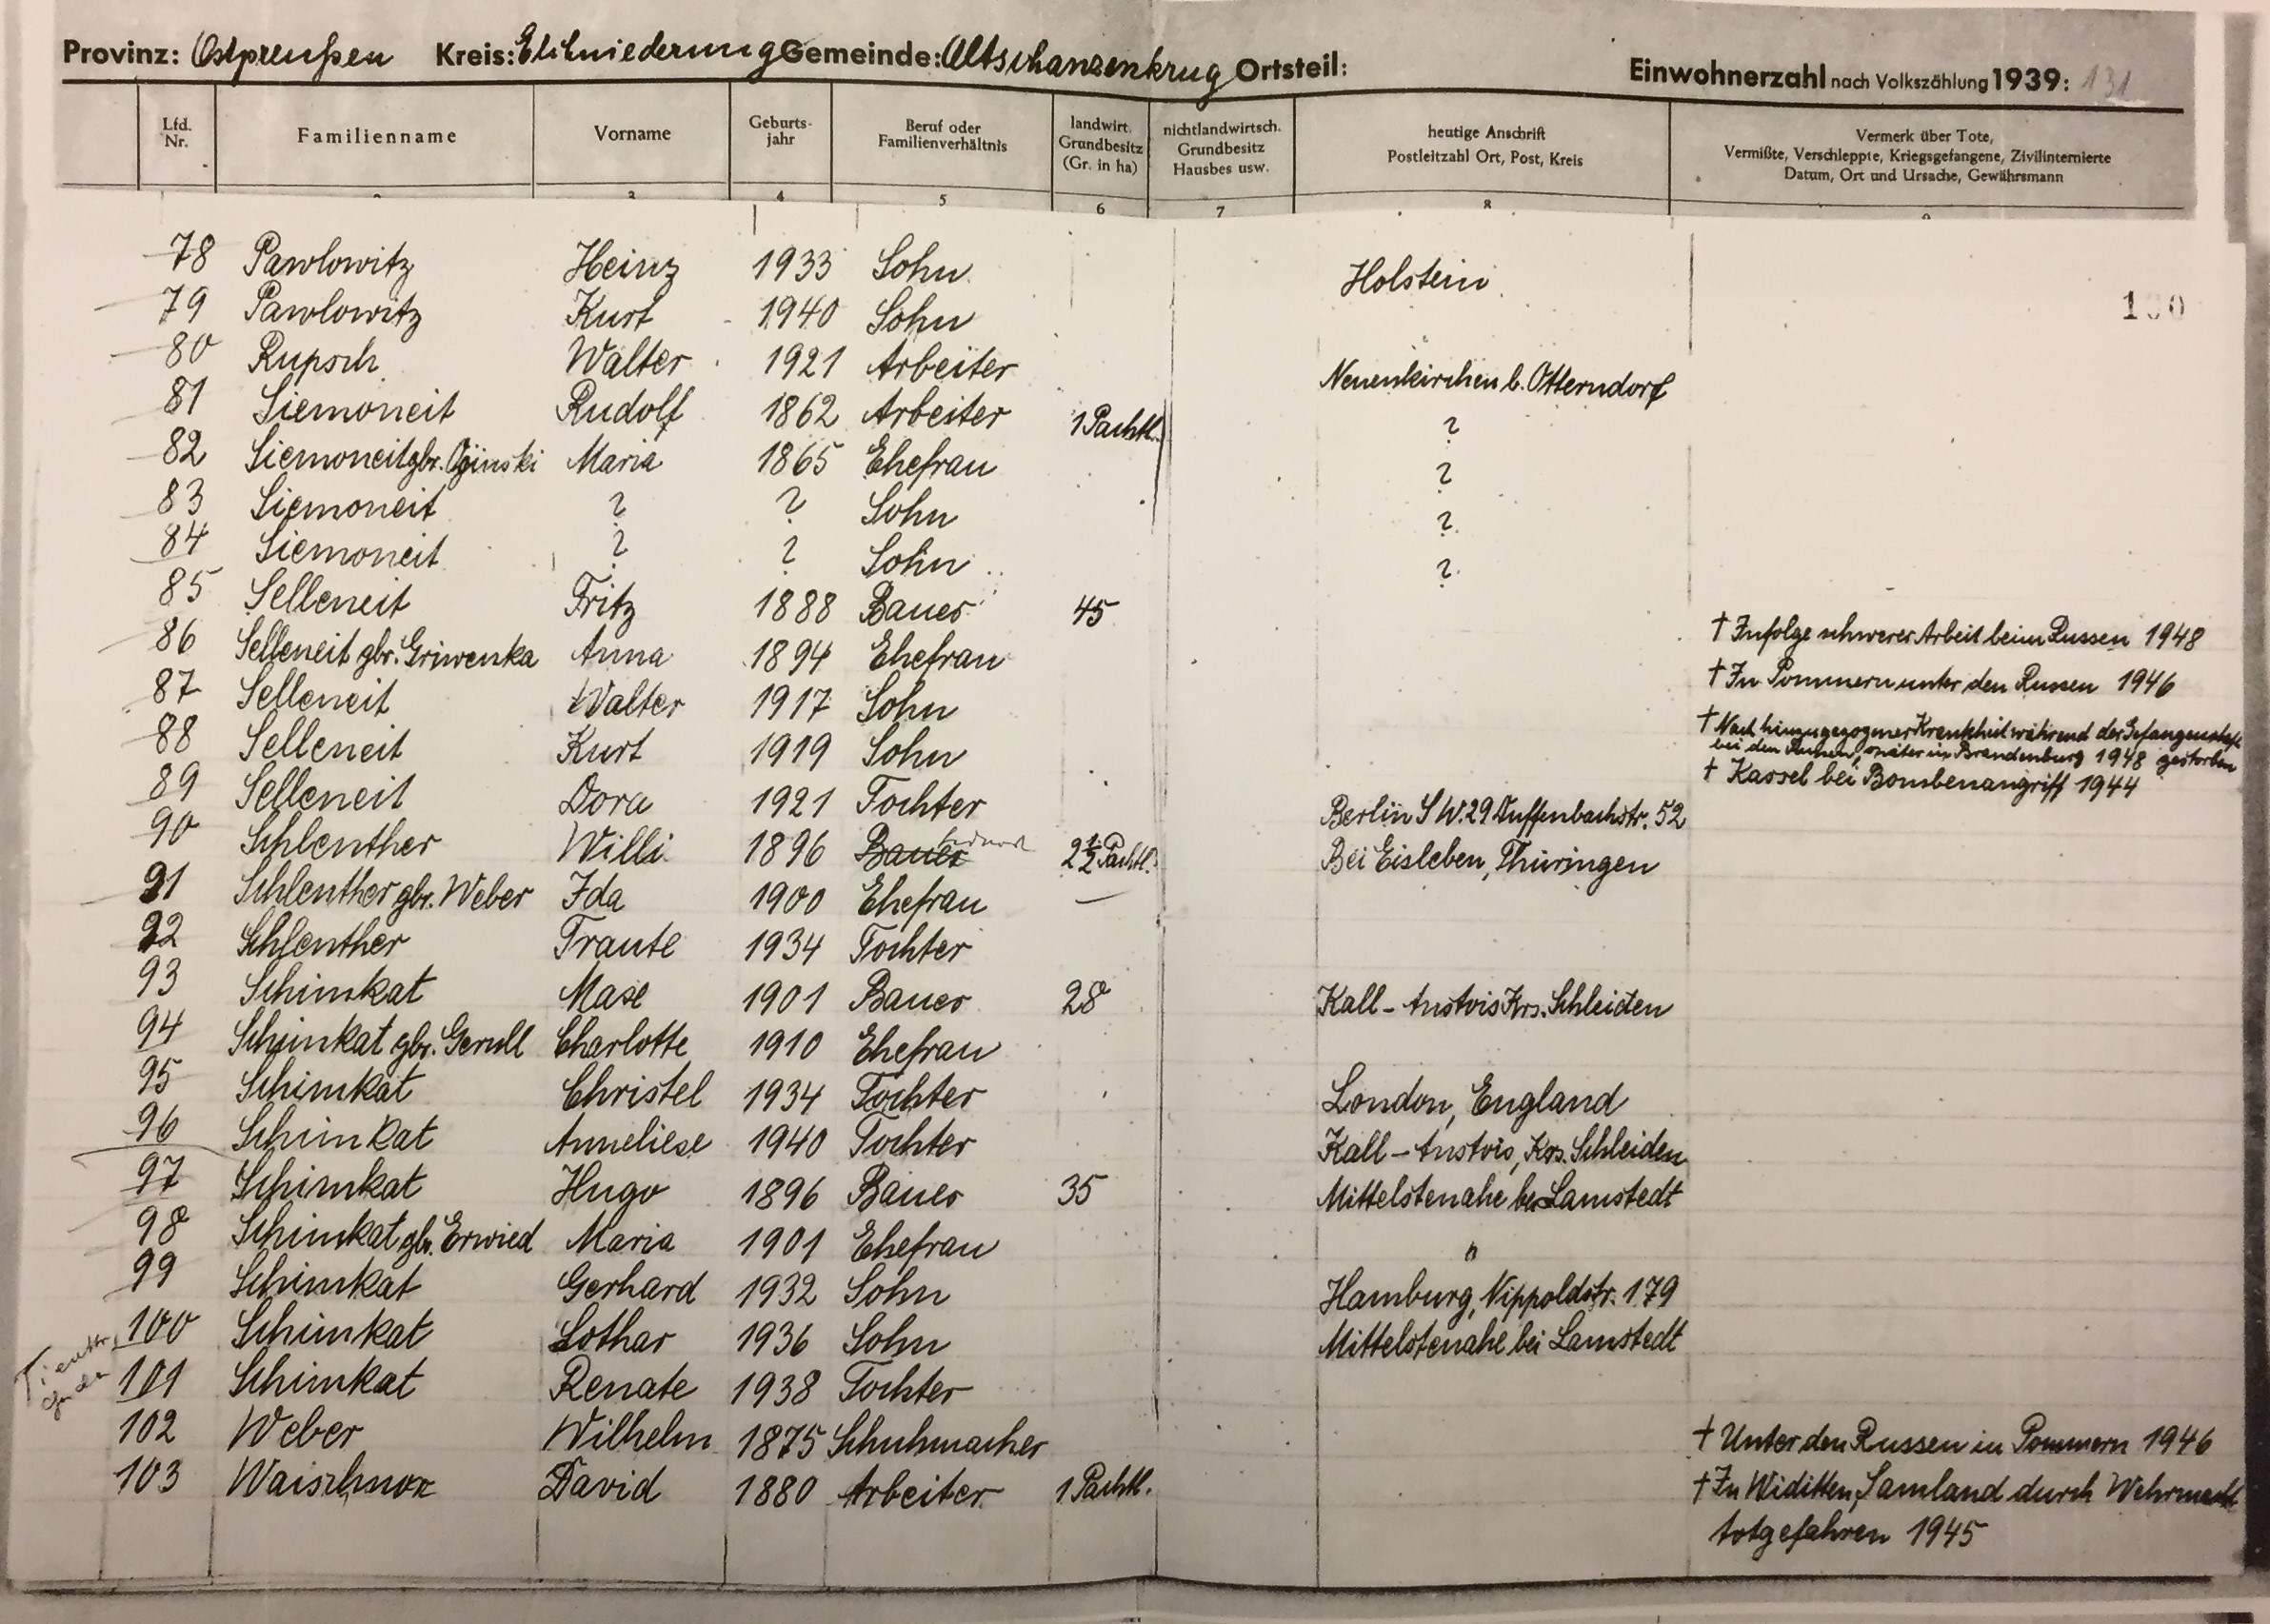 Provinz: Ostpreußen Kreis: Elchniederung Gemeinde: Altschanzenkrug Ortsteil: Einwohnerzahl nach Volkszählung 1939: 131
Lfd. Nr. Familienname Vorname Geburts- jahr Beruf oder Familienverhältnis landwirt. Grundbesitz (Gr. in ha) nichtlandwirtsch. Grundbesitz Hausbes usw. heutige Anschrift Postleitzahl Ort, Post, Kreis Vermerk über Tote, Vermißte, Verschleppte, Kriegsgefangene, Zivilinternierte Datum, Ort und Ursache, Gewährsmann
3 4 5 6 7 8
78 Pawlowitz Heinz 1933 Sohn Holstein
79 Pawlowitz Kurt 1940 Sohn
80 Rupsch Walter 1921 Arbeiter Neuenkirchen b. Otterndorf
81 Siemoneit Rudolf 1862 Arbeiter 1 Pachtl. ?
82 Siemoneit gbr. Oginski Maria 1865 Ehefrau ?
83 Siemoneit ? ? Sohn ?
84 Siemoneit ? ? Sohn ?
85 Selleneit Fritz 1888 Bauer 45 † Infolge schwerer Arbeit beim Russen 1948
86 Selleneit gbr. Griwenka Anna 1894 Ehefrau † In Pommern unter den Russen 1946
87 Selleneit Walter 1917 Sohn † Nach hinzugezogner Krankheit während der Gefangenschaft bei den Russen, später in Brandenburg 1948 gestorben
88 Selleneit Kurt 1919 Sohn † Kassel bei Bombenangriff 1944
89 Selleneit Dora 1921 Tochter Berlin S W. 29 Duffenbachstr. 52
90 Schlenther Willi 1896 Bauer 2 1/2 Pachtl. Bei Eisleben, Thüringen
91 Schlenther gbr. Weber Ida 1900 Ehefrau —
92 Schlenther Traute 1934 Tochter
93 Schimkat Max 1901 Bauer 28 Kall - Anstois Krs. Schleiden
94 Schimkat gbr. Gerull Charlotte 1910 Ehefrau
95 Schimkat Christel 1934 Tochter London, England
96 Schimkat Anneliese 1940 Tochter Kall - Anstois, Krs. Schleiden
97 Schimkat Hugo 1896 Bauer 35 Mittelstenahe bei Lamstedt
98 Schimkat gbr. Erwied Maria 1901 Ehefrau "
99 Schimkat Gerhard 1932 Sohn Hamburg, Nippoldstr. 179
100 Schimkat Lothar 1936 Sohn Mittelstenahe bei Lamstedt
101 Schimkat Renate 1938 Tochter
102 Weber Wilhelm 1875 Schuhmacher † Unter den Russen in Pommern 1946
103 Waischnor David 1880 Arbeiter 1 Pachtl. † In Widitten, Samland durch Wehrmacht
totgefahren 1945